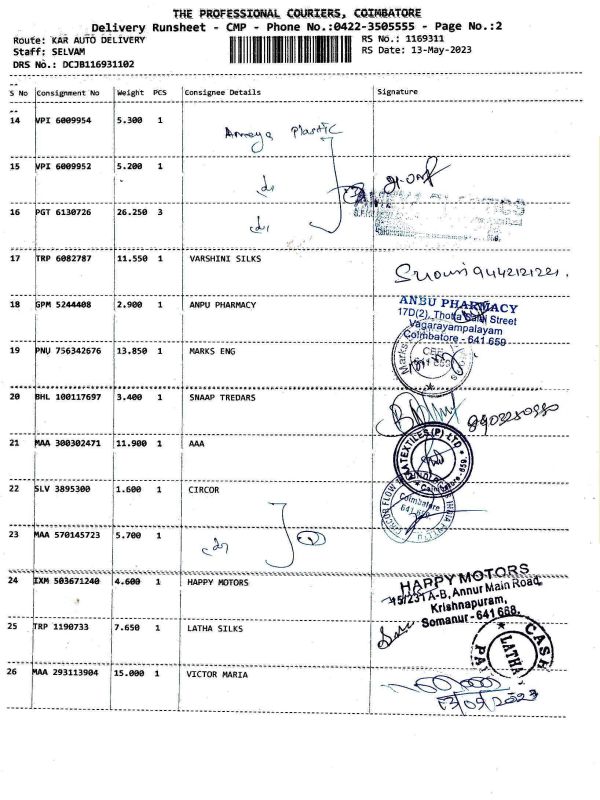 THE PROFESSIONAL COURIERS, COIMBATORE
Delivery Runsheet - CMP - Phone No.:0422-3505555 - Page No.:2
Route: KAR AUTO DELIVERY
RS No.: 1169311
Staff: SELVAM
RS Date: 13-May-2023
DRS No.: DCJB116931102
S No Consignment No Weight PCS Consignee Details Signature
14 VPI 6009954 5.300 1
Plastic
15 VPI 6009952 5.200 1
16 PGT 6130726 26.250 3
17 TRP 6082787 11.550 1 VARSHINI SILKS
9442121221.
18 GPM 5244408 2.900 1 ANPU PHARMACY
ANBU PHARMACY
17D(2), Thotta Salai Street
Vagarayampalayam
Coimbatore - 641 659
19 PNU 756342676 13.850 1 MARKS ENG
Marks
20 BHL 100117697 3.400 1 SNAAP TREDARS
21 MAA 300302471 11.900 1 AAA
22 SLV 3895300 1.600 1 CIRCOR
CIRCOR FLOW
Coimbatore
23 MAA 570145723 5.700 1
24 IXM 503671240 4.600 1 HAPPY MOTORS
HAPPY MOTORS
45/231 A-B, Annur Main Road,
Krishnapuram,
Somanur - 641 668.
25 TRP 1190733 7.650 1 LATHA SILKS
CASH
LATHA
26 MAA 293113904 15.000 1 VICTOR MARIA
13/05/2023